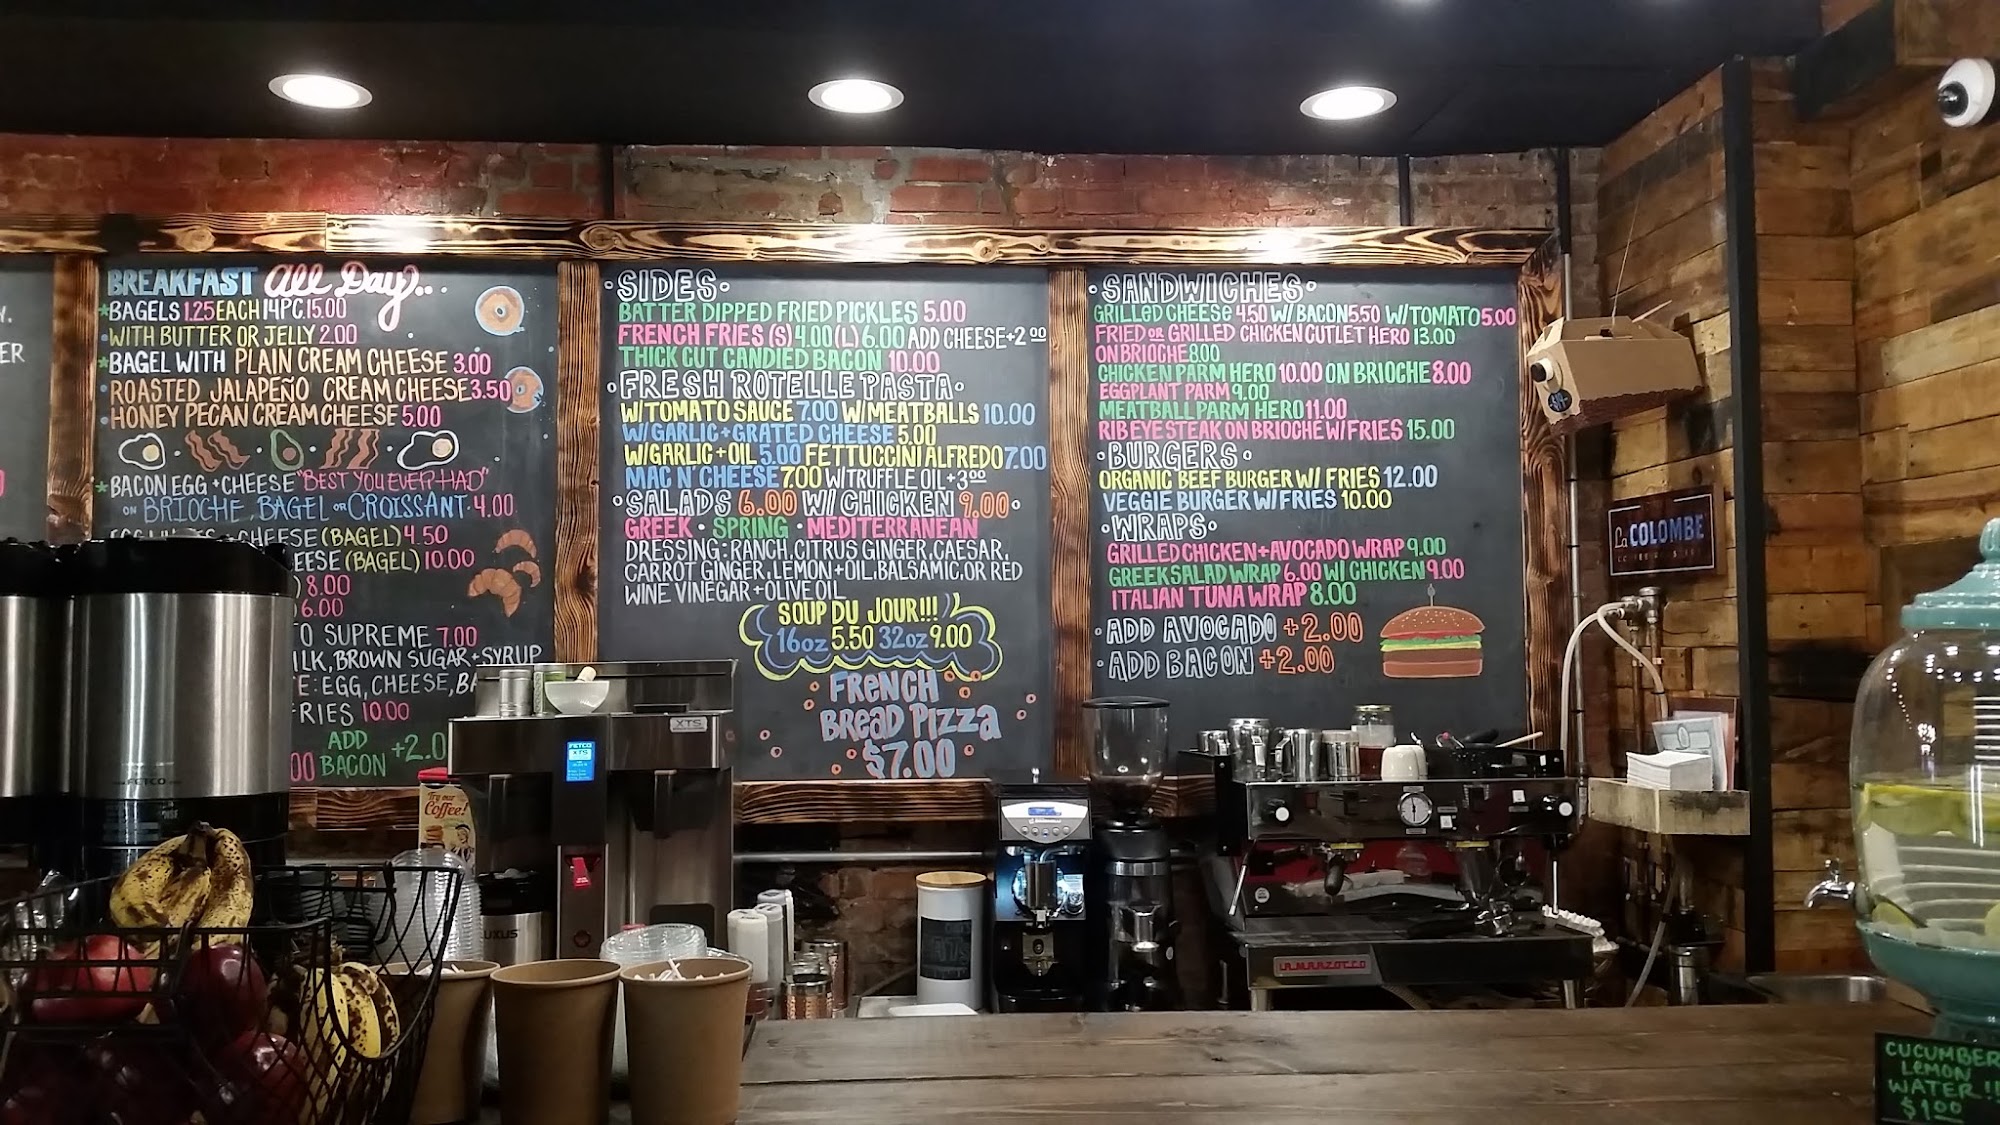 Y.
ER
BREAKFAST All Day..
*BAGELS 1.25 EACH 14PC. 15.00
•WITH BUTTER OR JELLY 2.00
*BAGEL WITH PLAIN CREAM CHEESE 3.00
•ROASTED JALAPEÑO CREAM CHEESE 3.50
•HONEY PECAN CREAM CHEESE 5.00
*BACON EGG + CHEESE "BEST YOU EVER HAD"
ON BRIOCHE, BAGEL OR CROISSANT • 4.00
+ CHEESE (BAGEL) 4.50
EESE (BAGEL) 10.00
) 8.00
) 6.00
TO SUPREME 7.00
ILK, BROWN SUGAR + SYRUP
E: EGG, CHEESE, BA
RIES 10.00
ADD
BACON +2.0
00
•SIDES•
BATTER DIPPED FRIED PICKLES 5.00
FRENCH FRIES (S) 4.00 (L) 6.00 ADD CHEESE +2.00
THICK CUT CANDIED BACON 10.00
•FRESH ROTELLE PASTA•
W/TOMATO SAUCE 7.00 W/MEATBALLS 10.00
W/GARLIC + GRATED CHEESE 5.00
W/GARLIC + OIL 5.00 FETTUCCINI ALFREDO 7.00
MAC N' CHEESE 7.00 W/TRUFFLE OIL +3.00
•SALADS 6.00 W/ CHICKEN 9.00•
GREEK • SPRING • MEDITERRANEAN
DRESSING: RANCH, CITRUS GINGER, CAESAR,
CARROT GINGER, LEMON + OIL, BALSAMIC, OR RED
WINE VINEGAR + OLIVE OIL
SOUP DU JOUR!!!
16oz 5.50 32oz 9.00
FRENCH
BREAD PIZZA
$7.00
•SANDWICHES•
GRILLED CHEESE 4.50 W/ BACON 5.50 W/TOMATO 5.00
FRIED OR GRILLED CHICKEN CUTLET HERO 13.00
ON BRIOCHE 8.00
CHICKEN PARM HERO 10.00 ON BRIOCHE 8.00
EGGPLANT PARM 9.00
MEATBALL PARM HERO 11.00
RIBEYE STEAK ON BRIOCHE W/ FRIES 15.00
•BURGERS•
ORGANIC BEEF BURGER W/ FRIES 12.00
VEGGIE BURGER W/FRIES 10.00
•WRAPS•
GRILLED CHICKEN + AVOCADO WRAP 9.00
GREEK SALAD WRAP 6.00 W/ CHICKEN 9.00
ITALIAN TUNA WRAP 8.00
•ADD AVOCADO +2.00
•ADD BACON +2.00
La COLOMBE
FETCO
XTS
FETCO
XTS
Coffee!
LUXUS
LA MARZOCCO
CUCUMBER
LEMON
WATER!!
$1.00